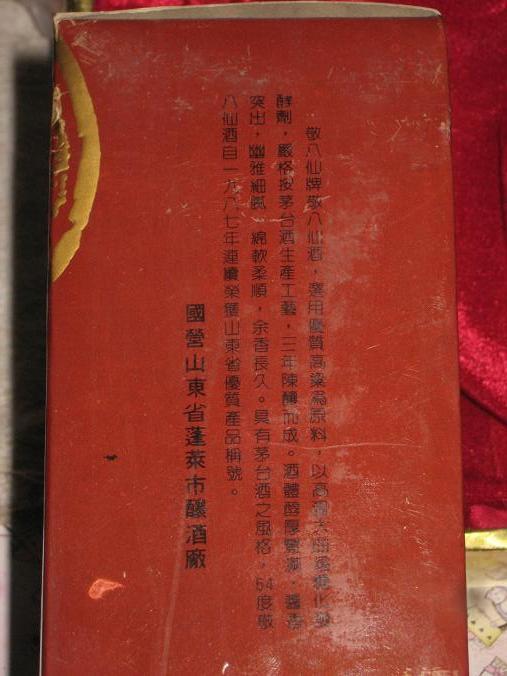 敬八仙牌敬八仙酒，選用優質高粱為原料，以高溫大曲為糖化發
酵劑，嚴格按茅台酒生產工藝，三年陳釀而成。酒體醇厚豐滿，醬香
突出，幽雅細膩、綿軟柔順，余香長久。具有茅台酒之風格，54度敬
八仙酒自一九八七年連續榮獲山東省優質產品稱號。
國營山東省蓬萊市釀酒廠